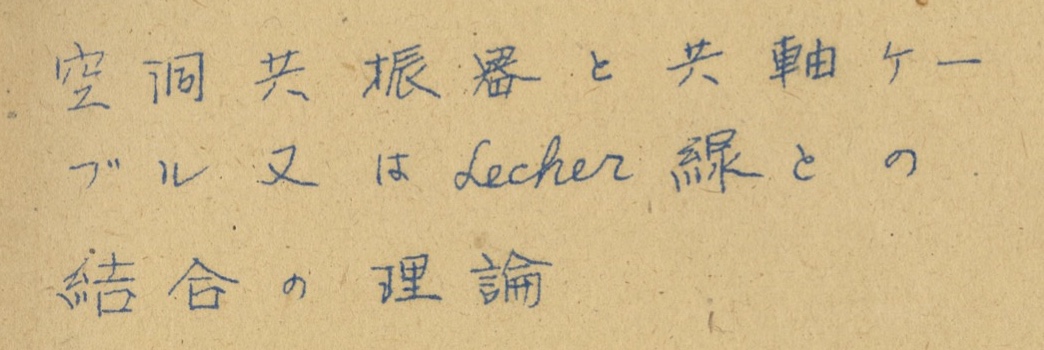 空洞共振器と共軸ケー
ブル又はLecher線との
結合の理論